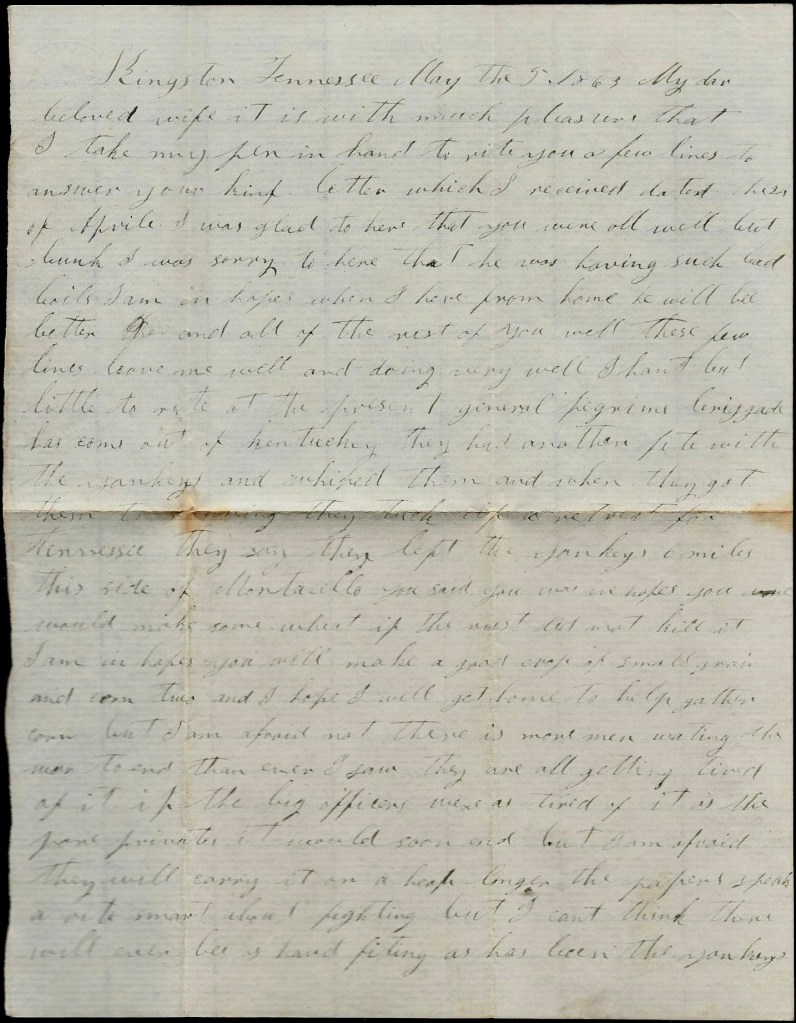 Kingston Tennessee May the 5 1863 My dar
beloved wife it is with much pleasure that
I take my pen in hand to rite you a few lines to
answer your kind letter which I received dated
of Aprile I was glad to here that you were all well but
I was sorry to here that he was having such bad
boils I am in hopes when I here from home he will be
better and all of the rest of you well these few
lines leave me well and doing very well I hant but
little to rite at the present general pegrims briggade
has come out of Kentuckey they had another fite with
the yankeys and whiped them and when they got
them to running they tuck up a retreat for
Tennessee they say they left the yankeys 6 miles
this side of Montacello you said you was in hopes you
would make some wheat if the rust did not kill it
I am in hopes you will make a good crop of small grain
and corn two and I hope I will get home to help gather
corn but I am afraid not there is more men wating the
war to end than ever I saw they are all getting tired
of it if the big officers were as tired of it as the
pore privates it would soon end but I am afraid
they will carry it on a heap longer the papers speak
a rite smart about fighting but I cant think there
will ever bee as hard fiting as has been the yankeys